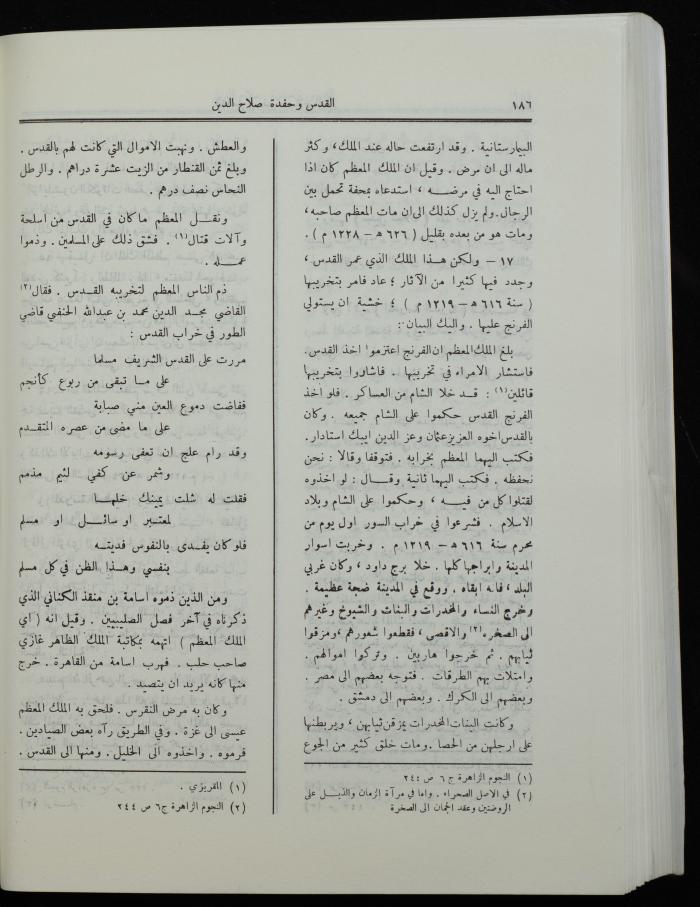 ١٨٦
القدس وحفدة صلاح الدين
البيمارستانية . وقد ارتفعت حاله عند الملك، وكثر
ماله الى ان مرض . وقيل ان الملك المعظم كان اذا
احتاج اليه في مرضه ، استدعاه بمحفة تحمل بين
الرجال . ولم يزل كذلك الى ان مات المعظم صاحبه،
ومات هو من بعده بقليل ( ٦٢٦ ه – ١٢٢٨ م ) .
١٧ – ولكن هذا الملك الذي عمر القدس ،
وجدد فيها كثيرا من الآثار ؛ عاد فامر بتخريبها
( سنة ٦١٦ ه – ١٢١٩ م ) ؛ خشية ان يستولي
الفرنج عليها . واليك البيان :
بلغ الملك المعظم ان الفرنج اعتزموا اخذ القدس.
فاستشار الامراء في تخريبها . فاشاروا بتخريبها
قائلين(١) : قد خلا الشام من العساكر . فلو اخذ
الفرنج القدس حكموا على الشام جميعه . وكان
بالقدس اخوه العزيز عثمان وعز الدين ايبك استادار.
فكتب اليهما المعظم بخرابه . فتوقفا وقالا : نحن
نحفظه . فكتب اليهما ثانية وقال : لو اخذوه
لقتلوا كل من فيه ، وحكموا على الشام وبلاد
الاسلام . فشرعوا في خراب السور اول يوم من
محرم سنة ٦١٦ ه – ١٢١٩ م . وخربت اسوار
المدينة وابراجها كلها . خلا برج داود ، وكان غربي
البلد ، فانه ابقاه . ووقع في المدينة ضجة عظيمة .
وخرج النساء والمخدرات والبنات والشيوخ وغيرهم
الى الصخره(٢) والاقصى ، فقطعوا شعورهم ، ومزقوا
ثيابهم . ثم خرجوا هاربين . وتركوا اموالهم .
وامتلات بهم الطرقات . فتوجه بعضهم الى مصر .
وبعضهم الى الكرك . وبعضهم الى دمشق .
وكانت البنات المخدرات يمزقن ثيابهن ، ويربطنها
على ارجلهن من الحصا . ومات خلق كثير من الجوع
(١) النجوم الزاهرة ج ٦ ص ٢٤٤
(٢) في الاصل الصحراء . واما في مرآة الزمان والذيل على
الروضتين وعقد الجمان الى الصخرة
والعطش . ونهبت الاموال التي كانت لهم بالقدس .
وبلغ ثمن القنطار من الزيت عشرة دراهم . والرطل
النحاس نصف درهم .
ونقل المعظم ما كان في القدس من اسلحة
وآلات قتال(١) . فشق ذلك على المسلمين . وذموا
عمله .
ذم الناس المعظم لتخريبه القدس . فقال(٢)
القاضي مجد الدين محمد بن عبدالله الحنفي قاضي
الطور في خراب القدس :
مررت على القدس الشريف مسلما
على ما تبقى من ربوع كأنجم
ففاضت دموع العين مني صبابة
على ما مضى من عصره المتقدم
وقد رام علج ان تعفى رسومه
وشمر عن كفي لئيم مذمم
فقلت له شلت يمينك خلها
لمعتبر او سائل او مسلم
فلو كان يفدى بالنفوس فديته
بنفسي وهذا الظن في كل مسلم
ومن الذين ذموه اسامة بن منقذ الكناني الذي
ذكرناه في آخر فصل الصليبيين . وقيل انه ( اي
الملك المعظم ) اتهمه بمكاتبة الملك الظاهر غازي
صاحب حلب . فهرب اسامة من القاهرة . خرج
منها كانه يريد ان يتصيد .
وكان به مرض النقرس . فلحق به الملك المعظم
عيسى الى غزة . وفي الطريق رآه بعض الصيادين .
فرموه . واخذوه الى الخليل . ومنها الى القدس .
(١) المقريزي .
(٢) النجوم الزاهرة ج ٦ ص ٢٤٤